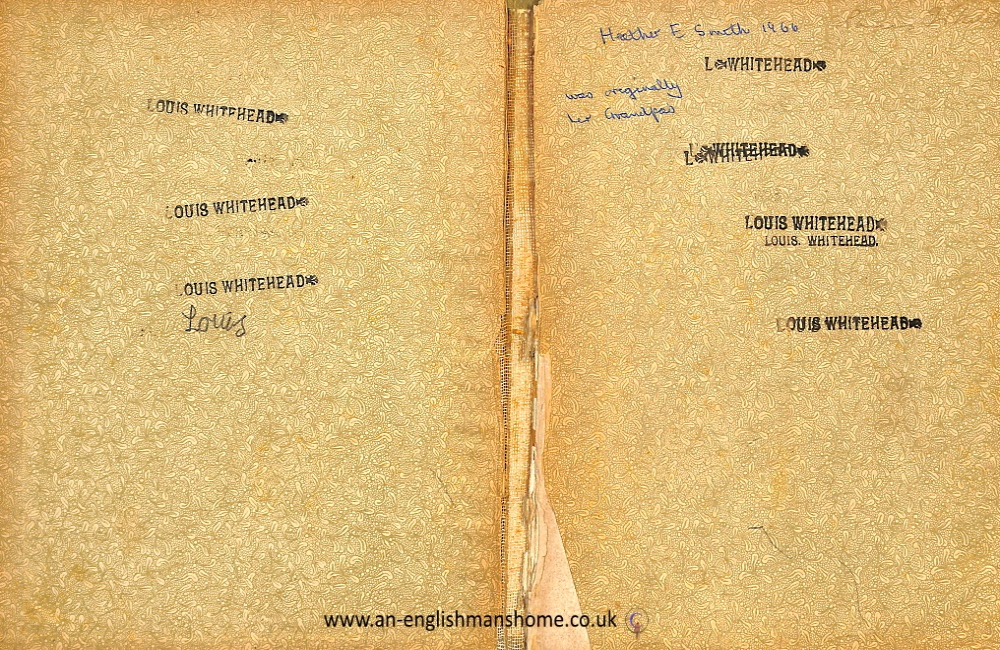 LOUIS WHITEHEAD
LOUIS WHITEHEAD
LOUIS WHITEHEAD
Louis
Heather E Smith 1966
L WHITEHEAD
was originally
her Grandpas
L WHITEHEAD
L WHITEHEAD
LOUIS WHITEHEAD
LOUIS. WHITEHEAD.
LOUIS WHITEHEAD
www.an-englishmanshome.co.uk